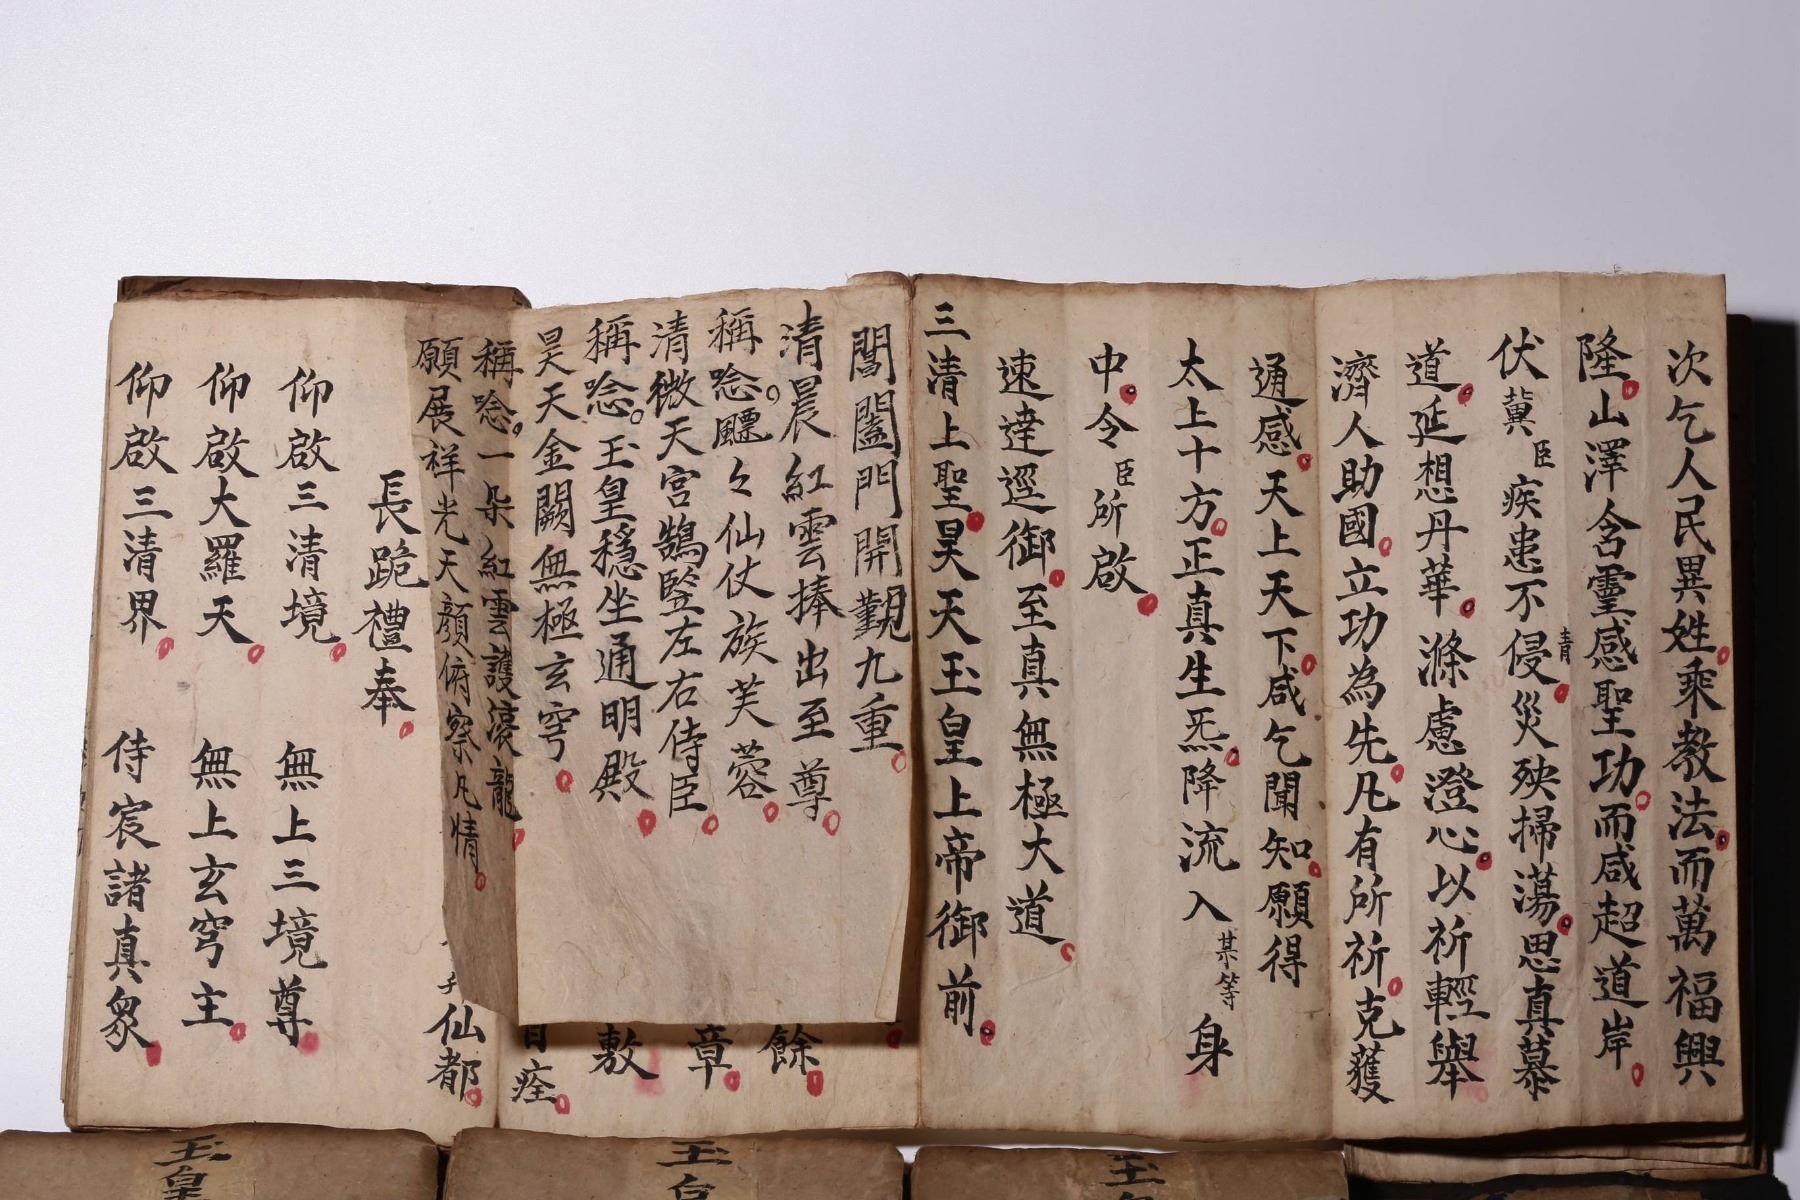 次乞人民異姓乘教法而萬福興
隆山澤含靈感聖功而咸超道岸
伏冀臣疾患不侵眚災殃掃蕩思真慕
道延想丹華滌慮澄心以祈輕舉
濟人助國立功為先凡有所祈克獲
通感天上天下咸乞聞知願得
太上十方正真生炁降流入某等身
中令臣所啟
速達逕御至真無極大道
三清上聖昊天玉皇上帝御前
閶闔門開觀九重
清晨紅雲捧出至尊
稱唸飃々仙仗族芙蓉
清微天宮鵠竪左右侍臣
稱唸玉皇穩坐通明殿
昊天金闕無極玄穹
稱唸一朵紅雲護滾龍
願展祥光天顏俯察凡情
餘
章
敷
痊
仙都
長跪禮奉
仰啟三清境 無上三境尊
仰啟大羅天 無上玄穹主
仰啟三清界 侍宸諸真衆
玉皇
玉皇
玉皇